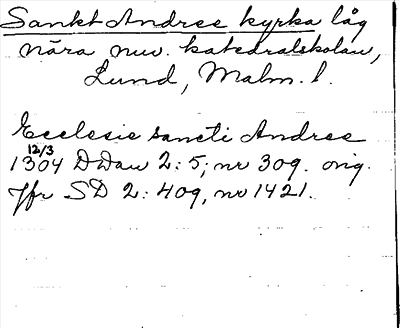 Sankt Andree kyrka låg
nära nuv. katedralskolan,
Lund, Malm. l.
Ecclesie sancti Andree
12/3
1304 DDan 2:5; nr 309. orig.
Jfr SD 2:409, nr 1421.